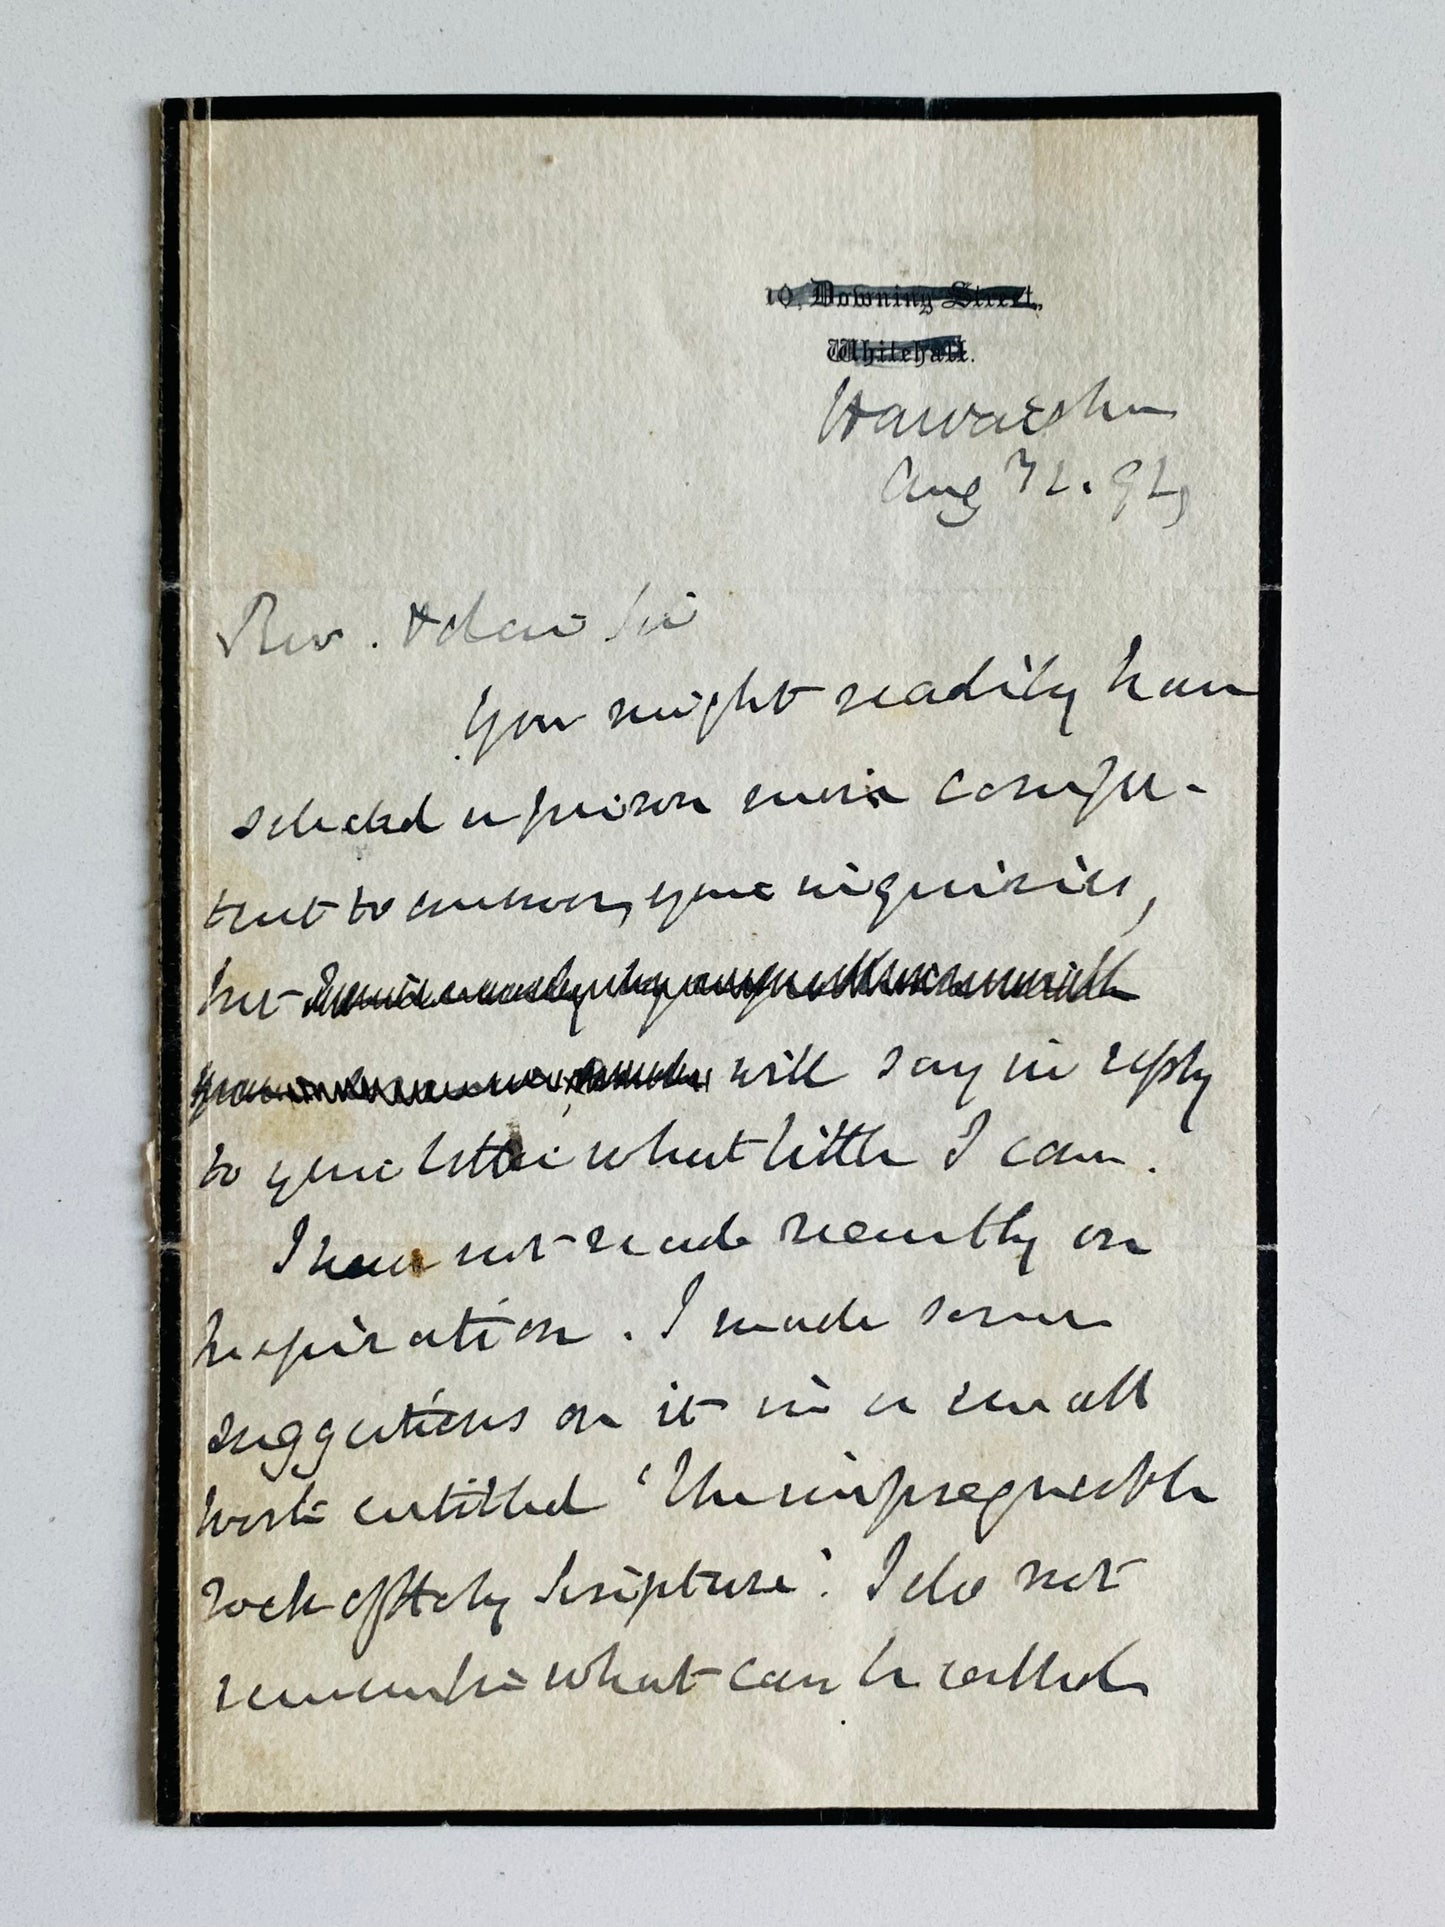 10, Downing Street,
Whitehall.
Hawarden
Aug 92
Rev. & dear Sir
You might readily have
selected a person more compe-
tent to answer your inquiries,
but
will say in reply
to your letter what little I can.
I have not read recently on
Inspiration. I made some
suggestions on it in a small
work entitled 'The impregnable
rock of Holy Scripture'. I do not
remember what can be called